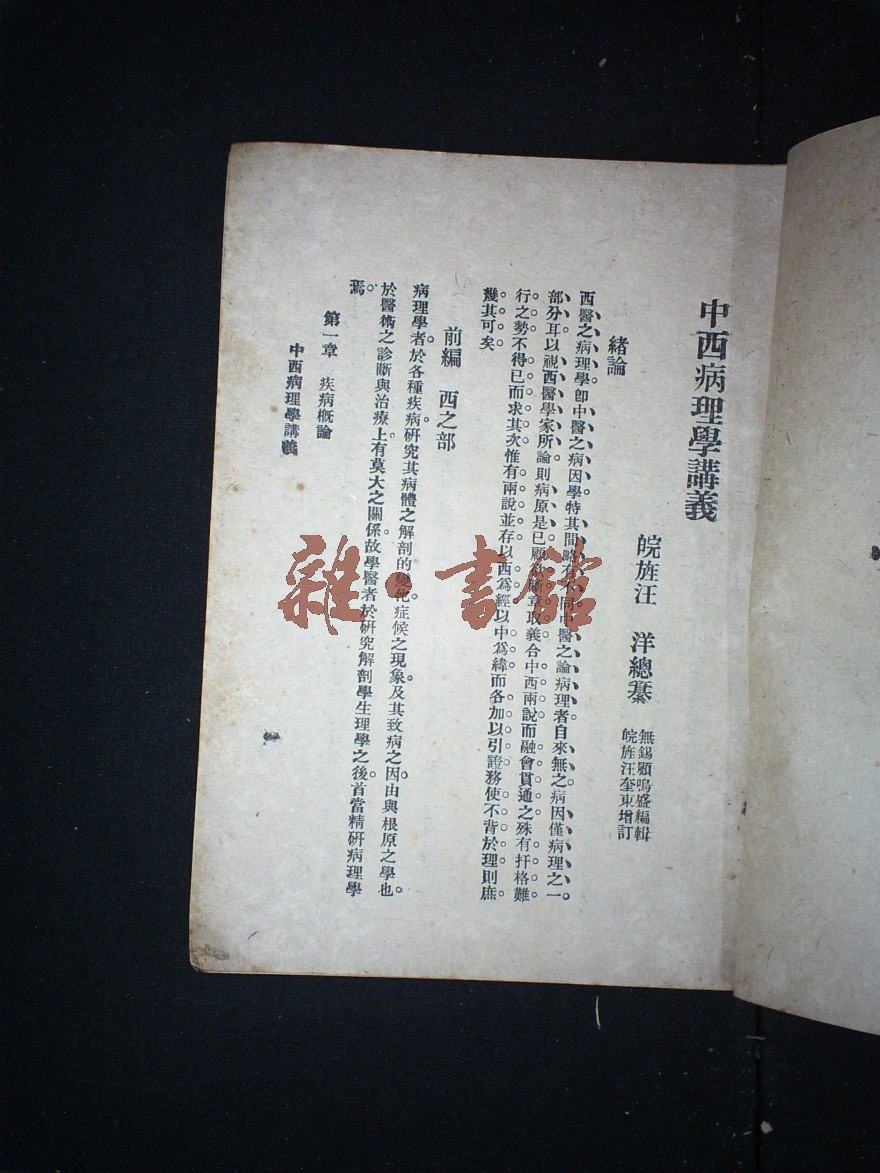 中西病理學講義
皖旌汪 洋總纂
無錫顧鳴盛編輯
皖旌汪奎東增訂
緒論
西醫之病理學。卽中醫之病因學。特其間略有不同。中醫之論病理者。自來無之。病因僅病理之一
部分耳。以視西醫學家所論則病原是已顧欲斷章取義合中西兩說而融會貫通之殊有扞格難
行之勢不得已而求其次惟有兩說並存以西爲經以中爲緯而各加以引證務使不背於理則庶
幾其可矣
前編 西之部
病理學者。於各種疾病。研究其病體之解剖的變化。症候之現象。及其致病之因由與根原之學也。
於醫術之診斷與治療上。有莫大之關係。故學醫者於研究解剖學生理學之後。首當精研病理學
焉。
第一章 疾病概論
中西病理學講義
雜·書館